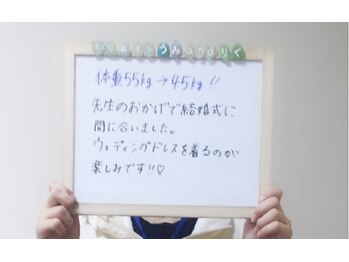 スリムインうみandりく
体重55kg→45kg!!
先生のおかげで結婚式に
間に合いました。
ウェディングドレスを着るのが
楽しみです!!♡